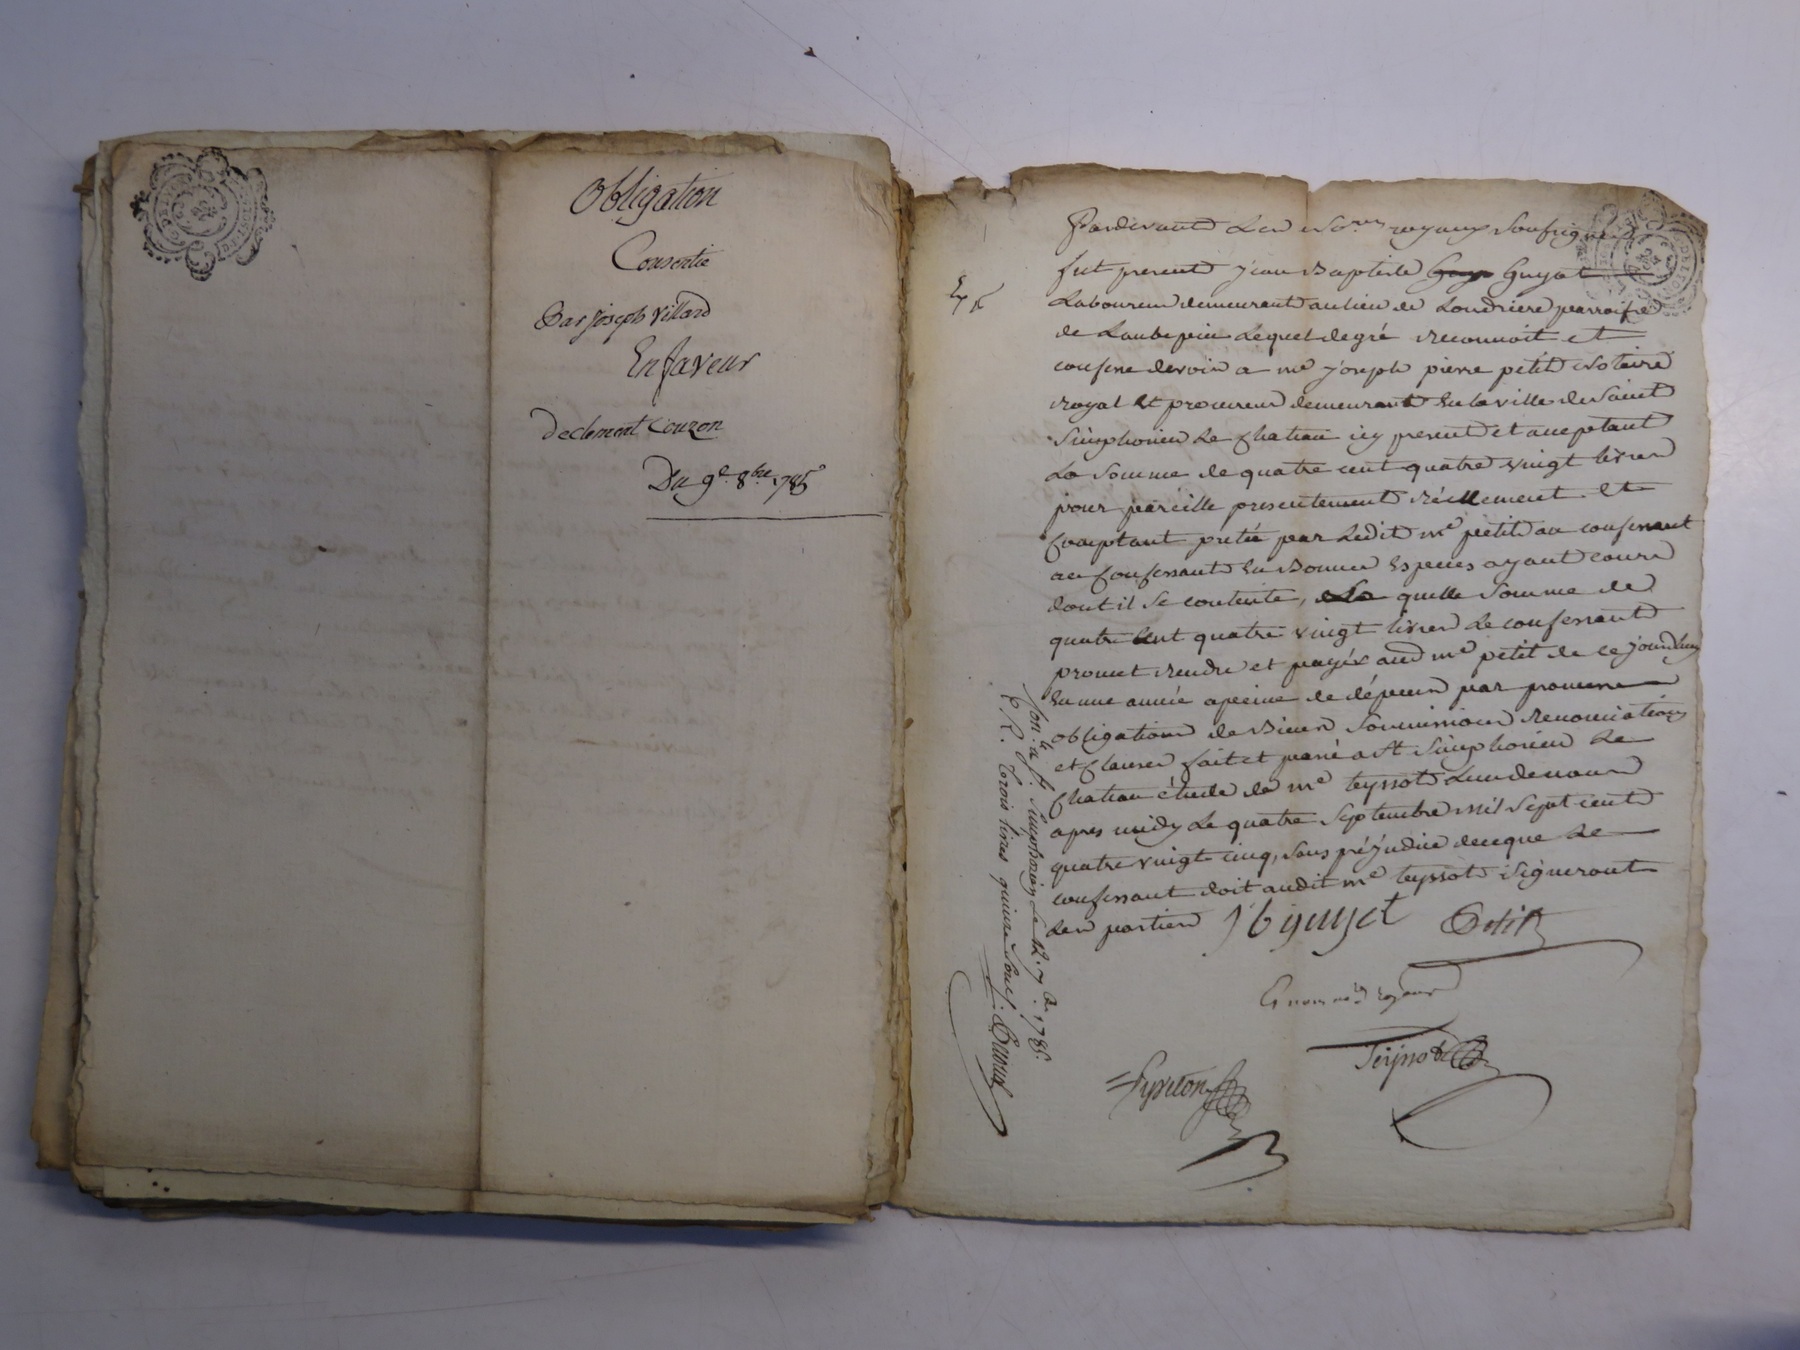 Obligation
Consentie
Par Joseph Villard
En faveur
De Clement Couzon
Du 9e 8bre 1785
Pardevant Les No.res royaux Soussignés
fut present Jean Baptiste Guyot
Laboureur demeurant au lieu de Loudriere parroisse
de Laubepin Lequel de gré reconnoit et
confesse devoir a me Joseph pierre petit Notaire
royal Et procureur demeurant En la ville de Saint
Simphorien Le Chateau icy present et acceptant
La Somme de quatre cent quatre vingt livres
pour pareille presentement réellement Et
Comptant pretée par Ledit me petit au confessant
au Confessant En Bonnes Especes ayant cours
dont il Se contente, La quelle Somme de
quatre Cent quatre vingt livres Le confessant
promet rendre et payér aud me petit de ce jourdhuy
En une année apeine de dépens par promesse
obligation de Biens Soumissions renonciations
et Clauses fait et passé a St Simphorien Le
Chateau étude de me teyssot L'un de nous
apres midy Le quatre Septembre mil Sept cent
quatre vingt cinq, Sans préjudice de ce que Le
confessant doit audit me teyssot Signeront
Les parties J b guyot Petit
Et nous no.res royaux
Teyssot
Con.lé a St. Simphorien Le 12. 7bre. 1785
R. trois livres quinze Sous.